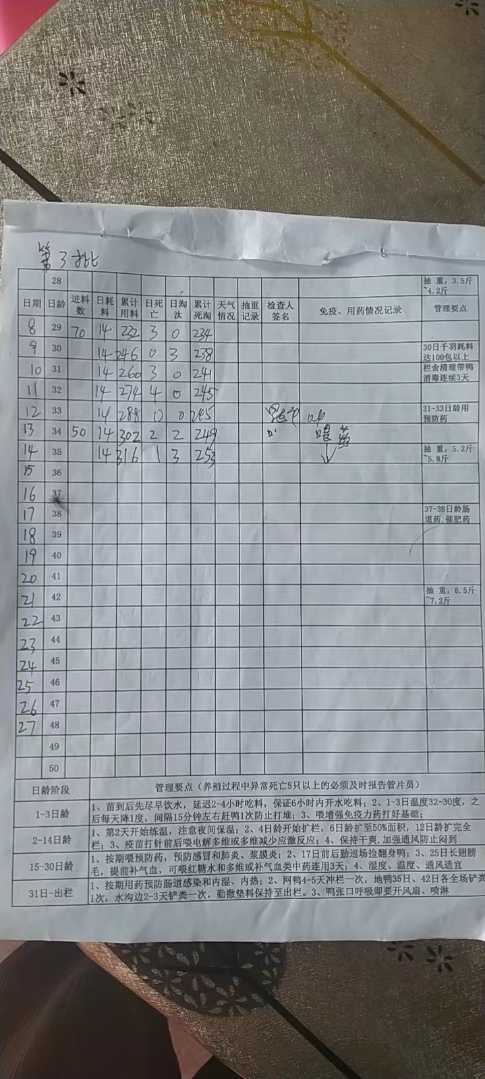 第3批
28 抽 重：3.5斤~4.2斤
日期 日龄 进料数 日耗料 累计用料 日死亡 日淘汰 累计死淘 天气情况 抽重记录 检查人签名 免疫、用药情况记录 管理要点
8 29 70 14 232 3 0 234
9 30 14 246 0 3 238 30日千羽耗料达100包以上
10 31 14 260 3 0 241 栏舍清理带鸭消毒连续3天
11 32 14 274 4 0 245
12 33 14 288 0 245 31-33日龄用预防药
13 34 50 14 302 2 2 249
14 35 14 316 1 3 253 抽 重：5.2斤~5.8斤
15 36
16 37
17 38 37-38日龄肠道药,催肥药
18 39
19 40
20 41
21 42 抽 重：6.5斤~7.2斤
22 43
23 44
24 45
25 46
26 47
27 48
49
50
日龄阶段 管理要点（养殖过程中异常死亡5只以上的必须及时报告管片员）
1-3日龄 1、苗到后先尽早饮水，延迟2-4小时吃料，保证6小时内开水吃料；2、1-3日温度32-30度，之
后每天降1度，间隔15分钟左右赶鸭1次防止打堆；3、喂增强免疫力药打好基础；
2-14日龄 1、第2天开始炼温，注意夜间保温；2、4日龄开始扩栏，6日龄扩至50%面积，12日龄扩完全
栏；3、疫苗打针前后喂电解多维或多维减少应激反应；4、保持干爽,加强通风防止闷到
15-30日龄 1、按期喂预防药，预防感冒和肺炎、浆膜炎；2、17日前后勤巡场捡翻身鸭；3、25日长翅膀
毛，提前补气血，可喂红糖水和多维或补气血类中药连用3天；4、湿度、温度、通风适宜
31日-出栏 1、按期用药预防肠道感染和内湿、内热；2、网鸭4-5天冲栏一次，地鸭35日、42日各全场铲粪
1次，水沟边2-3天铲粪一次，勤撒垫料保持至出栏。3、鸭张口呼吸即要开风扇、喷淋